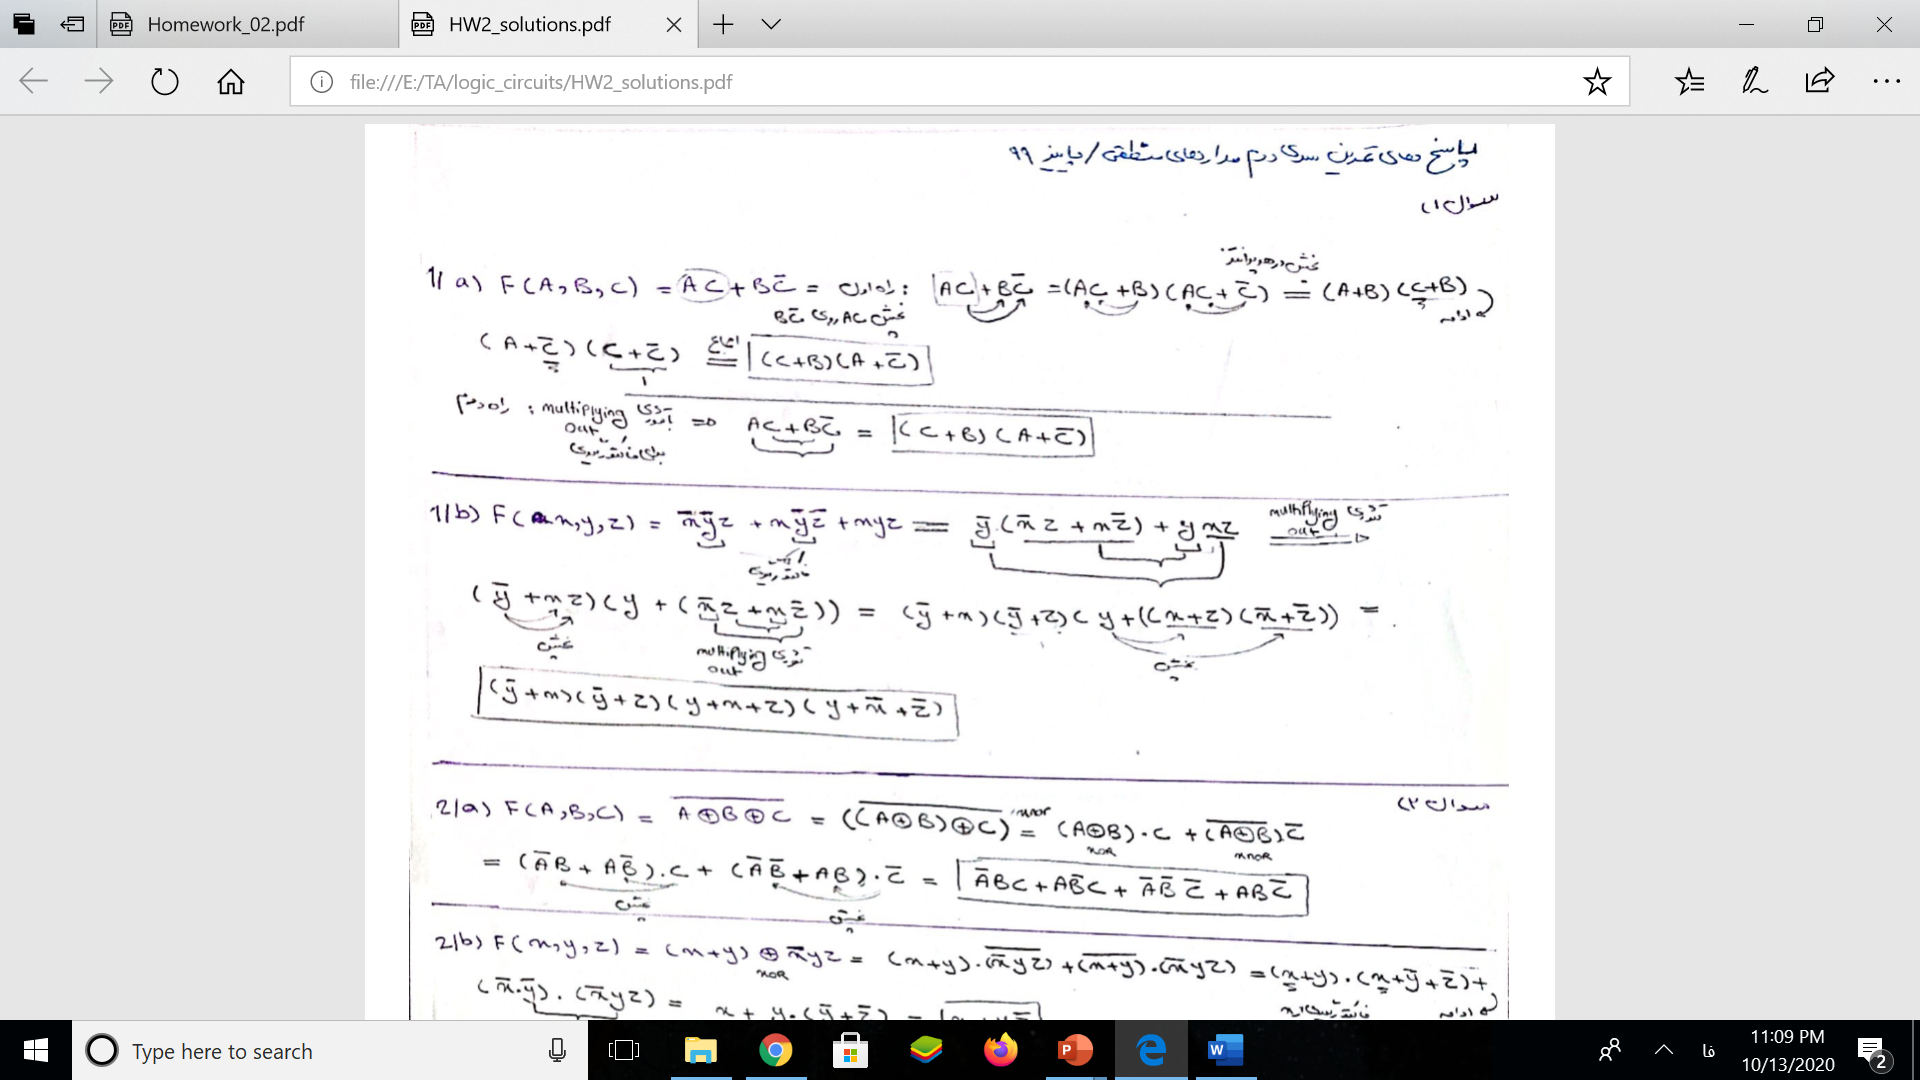 Homework_02.pdf
HW2_solutions.pdf
file:///E:/TA/logic_circuits/HW2_solutions.pdf
پاسخ های تمرین سری دوم مدارهای منطقی / پاییز ۹۹
سوال ۱)
پخش در هر پرانتز
1/ a) F(A,B,C) = AC + BC̅ = راه اول : AC + BC̅ = (AC+B)(AC+C̅) = (A+B)(C+B)
پخش AC روی BC̅
ادامه
(A+C̅)(C+C̅) اجماع = (C+B)(A+C̅)
1
راه دوم : multiplying out تئوری ⇒ AC+BC̅ = (C+B)(A+C̅)
برای فاکتورگیری
1/b) F(x,y,z) = x̅y̅z + xy̅z̅ + xyz = y̅.(x̅z + xz̅) + yxz multiplying out تئوری
فاکتورگیری
(y̅+xz)(y+(x̅z+xz̅)) = (y̅+x)(y̅+z)(y+((x+z)(x̅+z̅)) =
پخش
multiplying out تئوری
پخش
(y̅+x)(y̅+z)(y+x+z)(y+x̅+z̅)
سوال ۲)
2/a) F(A,B,C) = \overline{A⊕B⊕C} = (\overline{(A⊕B)⊕C}) xnor = (A⊕B).C + (\overline{A⊕B})C̅
xor xnor
= (A̅B + AB̅).C + (A̅B̅ + AB).C̅ = A̅BC + AB̅C + A̅B̅C̅ + ABC̅
پخش پخش
2/b) F(x,y,z) = (x+y) ⊕ x̅yz = (x+y).(\overline{x̅yz}) + (\overline{x+y}).(x̅yz) = (x+y).(x+y̅+z̅)+
xor
ادامه
(x̅.y̅).(x̅yz) = x + y.(y̅+z̅) =
Type here to search
فا
11:09 PM
10/13/2020
2